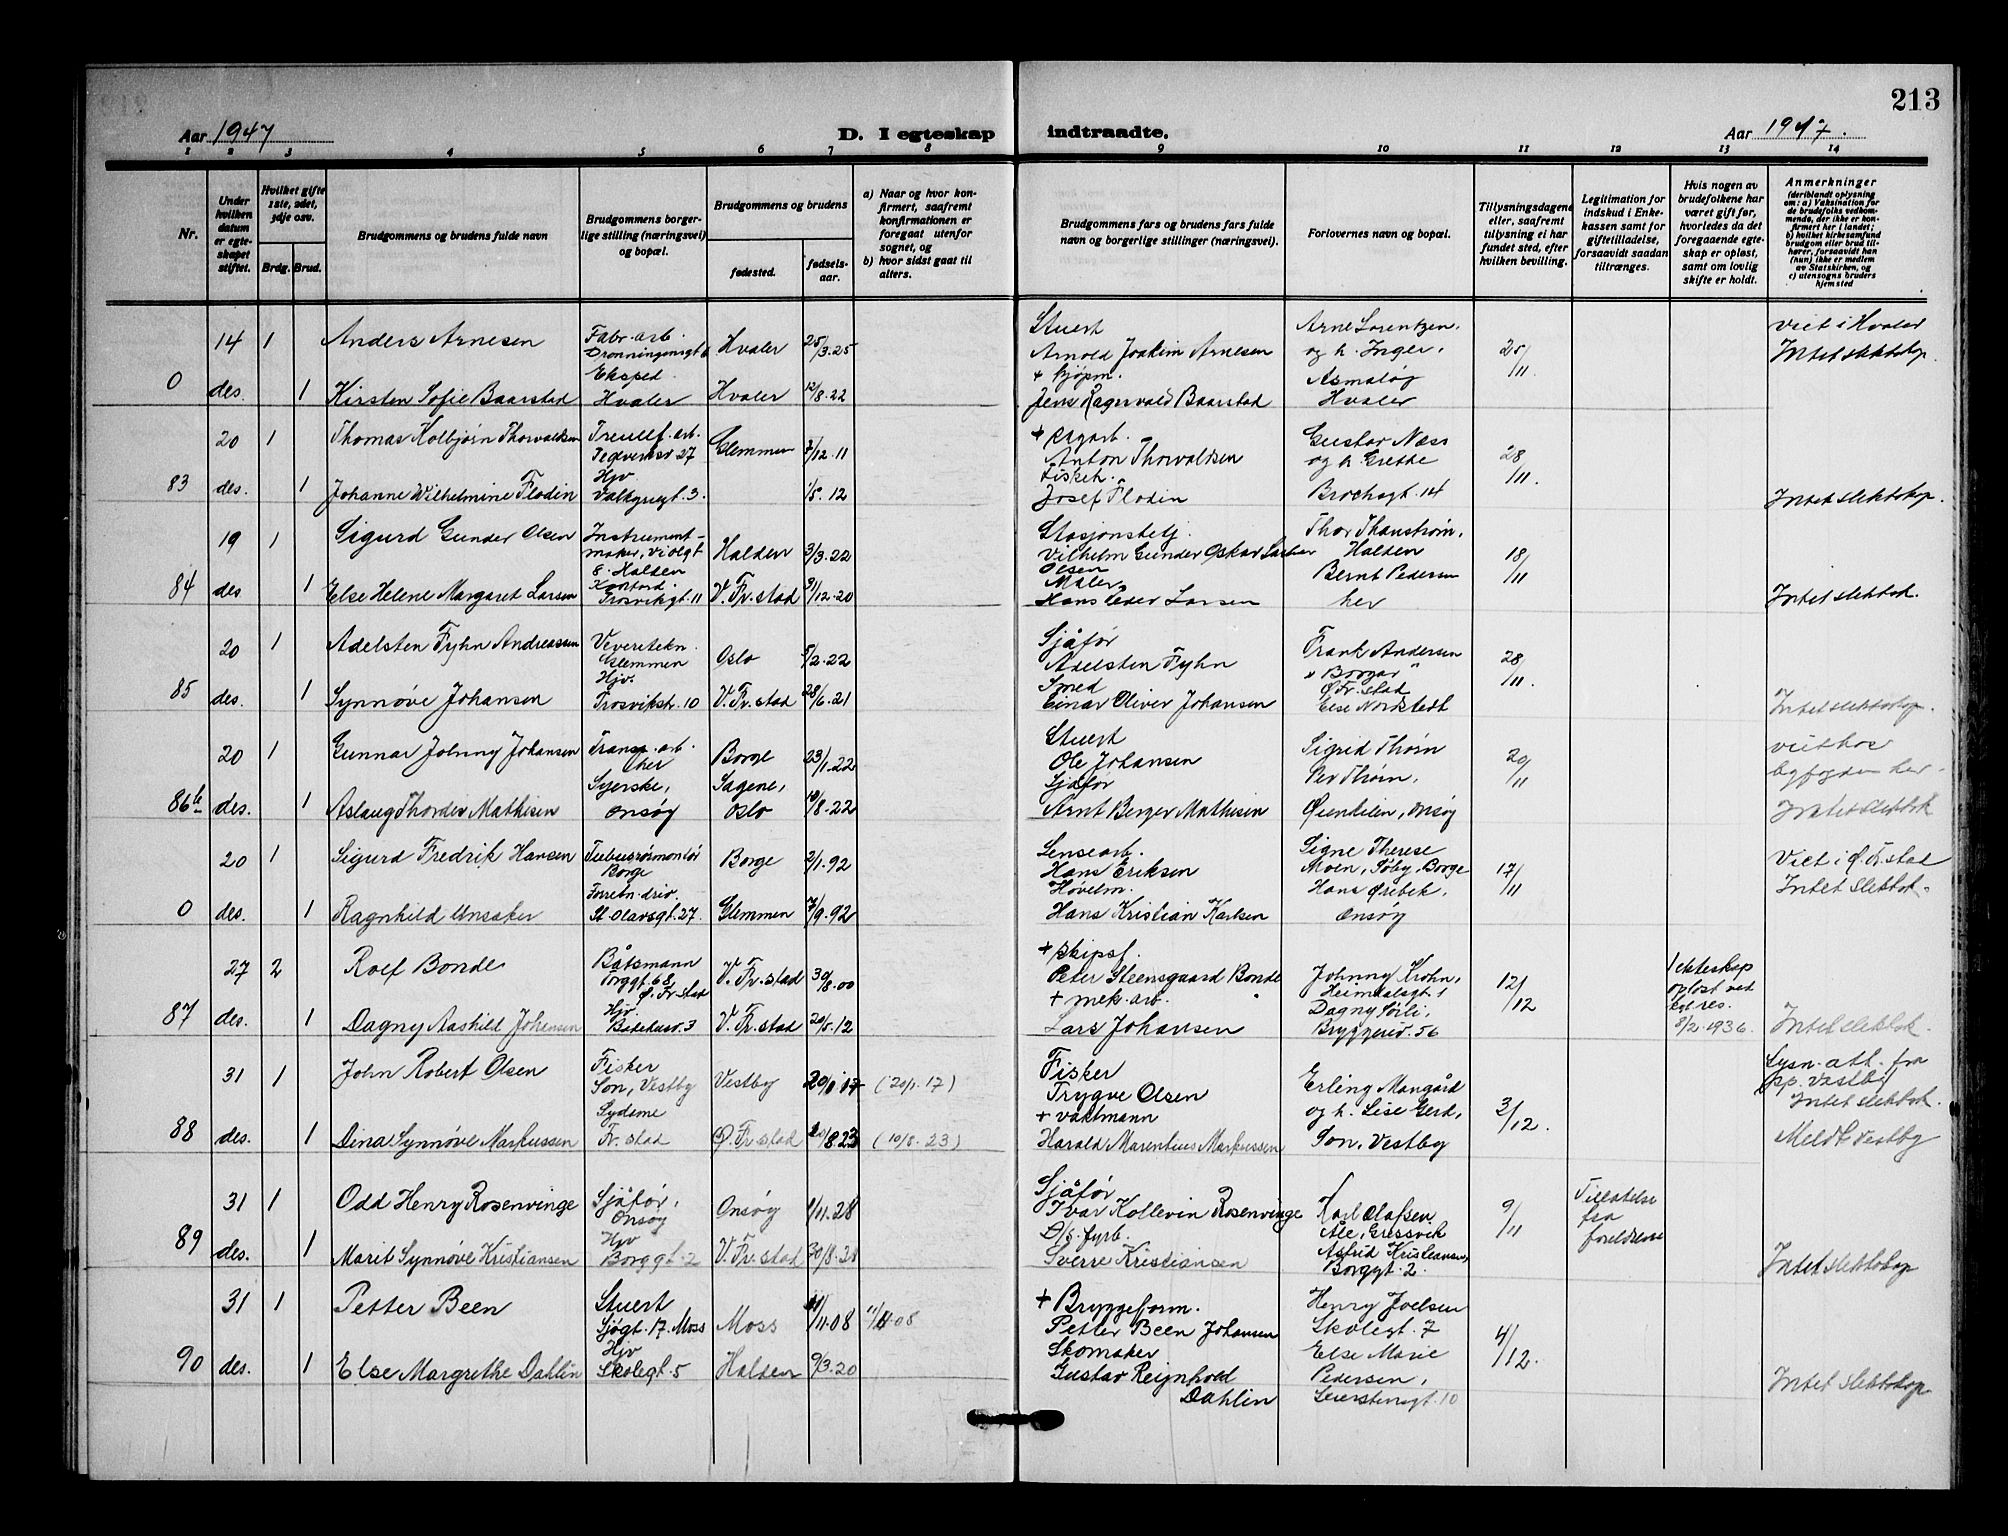 213
Aar 1947 D. I egteskap indtraadte. Aar 1947.
1 2 3 4 5 6 7 8 9 10 11 12 13 14
Nr.
Under hvilken datum er egteskapet stiftet.
Hvilket gifte 1ste, 2det, 3dje osv.
Brdg. Brud.
Brudgommens og brudens fulde navn
Brudgommens borgerlige stilling (næringsvei) og bopæl.
Brudgommens og brudens
fødested. fødselsaar.
a) Naar og hvor konfirmert, saafremt konfirmationen er foregaat utenfor sognet, og
b) hvor sidst gaat til alters.
Brudgommens fars og brudens fars fulde navn og borgerlige stillinger (næringsvei).
Forlovernes navn og bopæl.
Tillysningsdagene eller, saafremt tillysning ei har fundet sted, efter hvilken bevilling.
Legitimation for indskud i Enkekassen samt for giftetilladelse, forsaavidt saadan tiltrænges.
Hvis nogen av brudefolkene har været gift før, hvorledes da det foregaaende egteskap er opløst, samt om lovlig skifte er holdt.
Anmerkninger
(deriblandt oplysning om: a) Vaksination for de brudefolks vedkommende, der ikke er konfirmert her i landet; b) hvilket kirkesamfund brudgom eller brud tilhører, forsaavidt han (hun) ikke er medlem av Statskirken, og c) utensogns bruders hjemsted
14 1 Anders Arnesen Fabr.arb. Dronningensgt 6 Hvaler 25/3.25 Stuert Arnold Joakim Arnesen Arne Lorentzen, og h. Inger, 25/11. Viet i Hvaler Intet slektskap.
0 des. 1 Kirsten Sofie Baarstad Eksped. Hvaler Hvaler 12/8.22 + kjøpm. Jens Ragnvald Baarstad Asmaløy Hvaler
20 1 Thomas Kolbjørn Thorvaldsen Treullf.arb. Teglverksv 27 Glemmen 7/12.11 Anton Thorvaldsen Gustav Næss og h. Grethe 28/11.
83 des. 1 Johanne Wilhelmine Flodin Hjv 1/5.12 Fiskeh. Josef Flodin Brochsgt.14 Intet slektskap.
19 1 Sigurd Gunder Olsen Instrumentmaker, Violgt 8. Halden Halden 3/3.22 Stasjonsbetj. Vilhelm Gunder Oskar Olsen Halden 18/11
84 des 1 Else Helene Margaret Larsen Kontord. Trosvikgt.11 V. Fr.stad 31/12.20 Maler Hans Peder Larsen Bernt Pedersen her Intet slektsk.
20 1 Adelsten Fyhn Andreassen Veveretekn. Glemmen Oslo 5/2.22 Sjåfør Adelsten Fyhn Frank Andersen " Borgar " Ø. Fr.stad 28/11.
85 des. 1 Synnøve Johansen Hjv. Trosvikstr.10 V. Fr.stad 28/6.21 Smed Einar Oliver Johansen Else Nordstedt Intet slektskap.
20 1 Gunnar Johnny Johansen Transp.arb. her Borge 23/1.22 Stuert Ole Johansen Sigrid Thorn Per Thorn, 20/11 viet hos byfogden her.
86b des. 1 Aslaug Thordis Mathisen Syerske, Onsøy Sagene, Oslo 10/8.22 Sjåfør Arnt Berger Mathisen Øiendelen, Onsøy Intet slektsk
20 1 Sigurd Fredrik Hansen Borge Borge 2/1.92 Lensearb. Hans Eriksen Signe Therese Moen, Søby, Borge 17/11 Viet i Ø. Fr.stad Intet slektsk.
0 des. 1 Ragnhild Unsaker Forretn.driv. St.Olavsgt.27. Glemmen 7/9.92 Høvelm. Hans Kristian Karlsen Hans Ørebek, Onsøy
27 2 Rolf Bonde Båtsmann Torggt 68 Ø. Fr.stad V. Fr.stad 30/8.00 + skipsf. Peter Steensgaard Bonde Johnny Krohn, Heimdalsgt 1 12/12 1 ekteskap opløst ved kgl.res. 8/2.1936.
87 des. 1 Dagny Aashild Johansen Hjv. V. Fr.stad 20/5.12 + mek.arb. Lars Johansen Dagny Sørli, Bryggeriv.56 Intet slektsk.
31 1 John Robert Olsen Fisker Son, Vestby Vestby 20/1.17 (20/1.17) Fisker Trygve Olsen Erling Mangård og h. Lise Gerd, 3/12. Lysn.att. fra spp. Vestby Intet slektsk.
88 des. 1 Dina Synnøve Markussen Sydame Fr.stad Ø. Fr.stad 10/8.23 (10/8.23) + vaktmann Harald Marentius Markussen Son, Vestby Meldt Vestby
31 1 Odd Henry Rosenvinge Sjåfør, Onsøy Onsøy 1/11.28 Sjåfør Ivar Kollevin Rosenvinge Karl Olafsen Åle, Gressvik 9/11 Tillatelse fra foreldrene
89 des. 1 Marit Synnøve Kristiansen Hjv Borggt.2 V. Fr.stad 30/8.28 D/s. fyrb. Sverre Kristiansen Astrid Kristiansen, Borggt.2. Intet slektskap
31 1 Petter Been Stuert Sjøgt.17. Moss Moss 11/11.08 11/11.08 + Bryggeform. Petter Been Johansen Henry Joelsen Skolegt.7 4/12.
90 des. 1 Else Margrethe Dahlin Hjv Skolegt.5 Halden 9/3.20 Skomaker Gustav Reignhold Dahlin Else Marie Pedersen, Leierstensgt.10 Intet slektskap